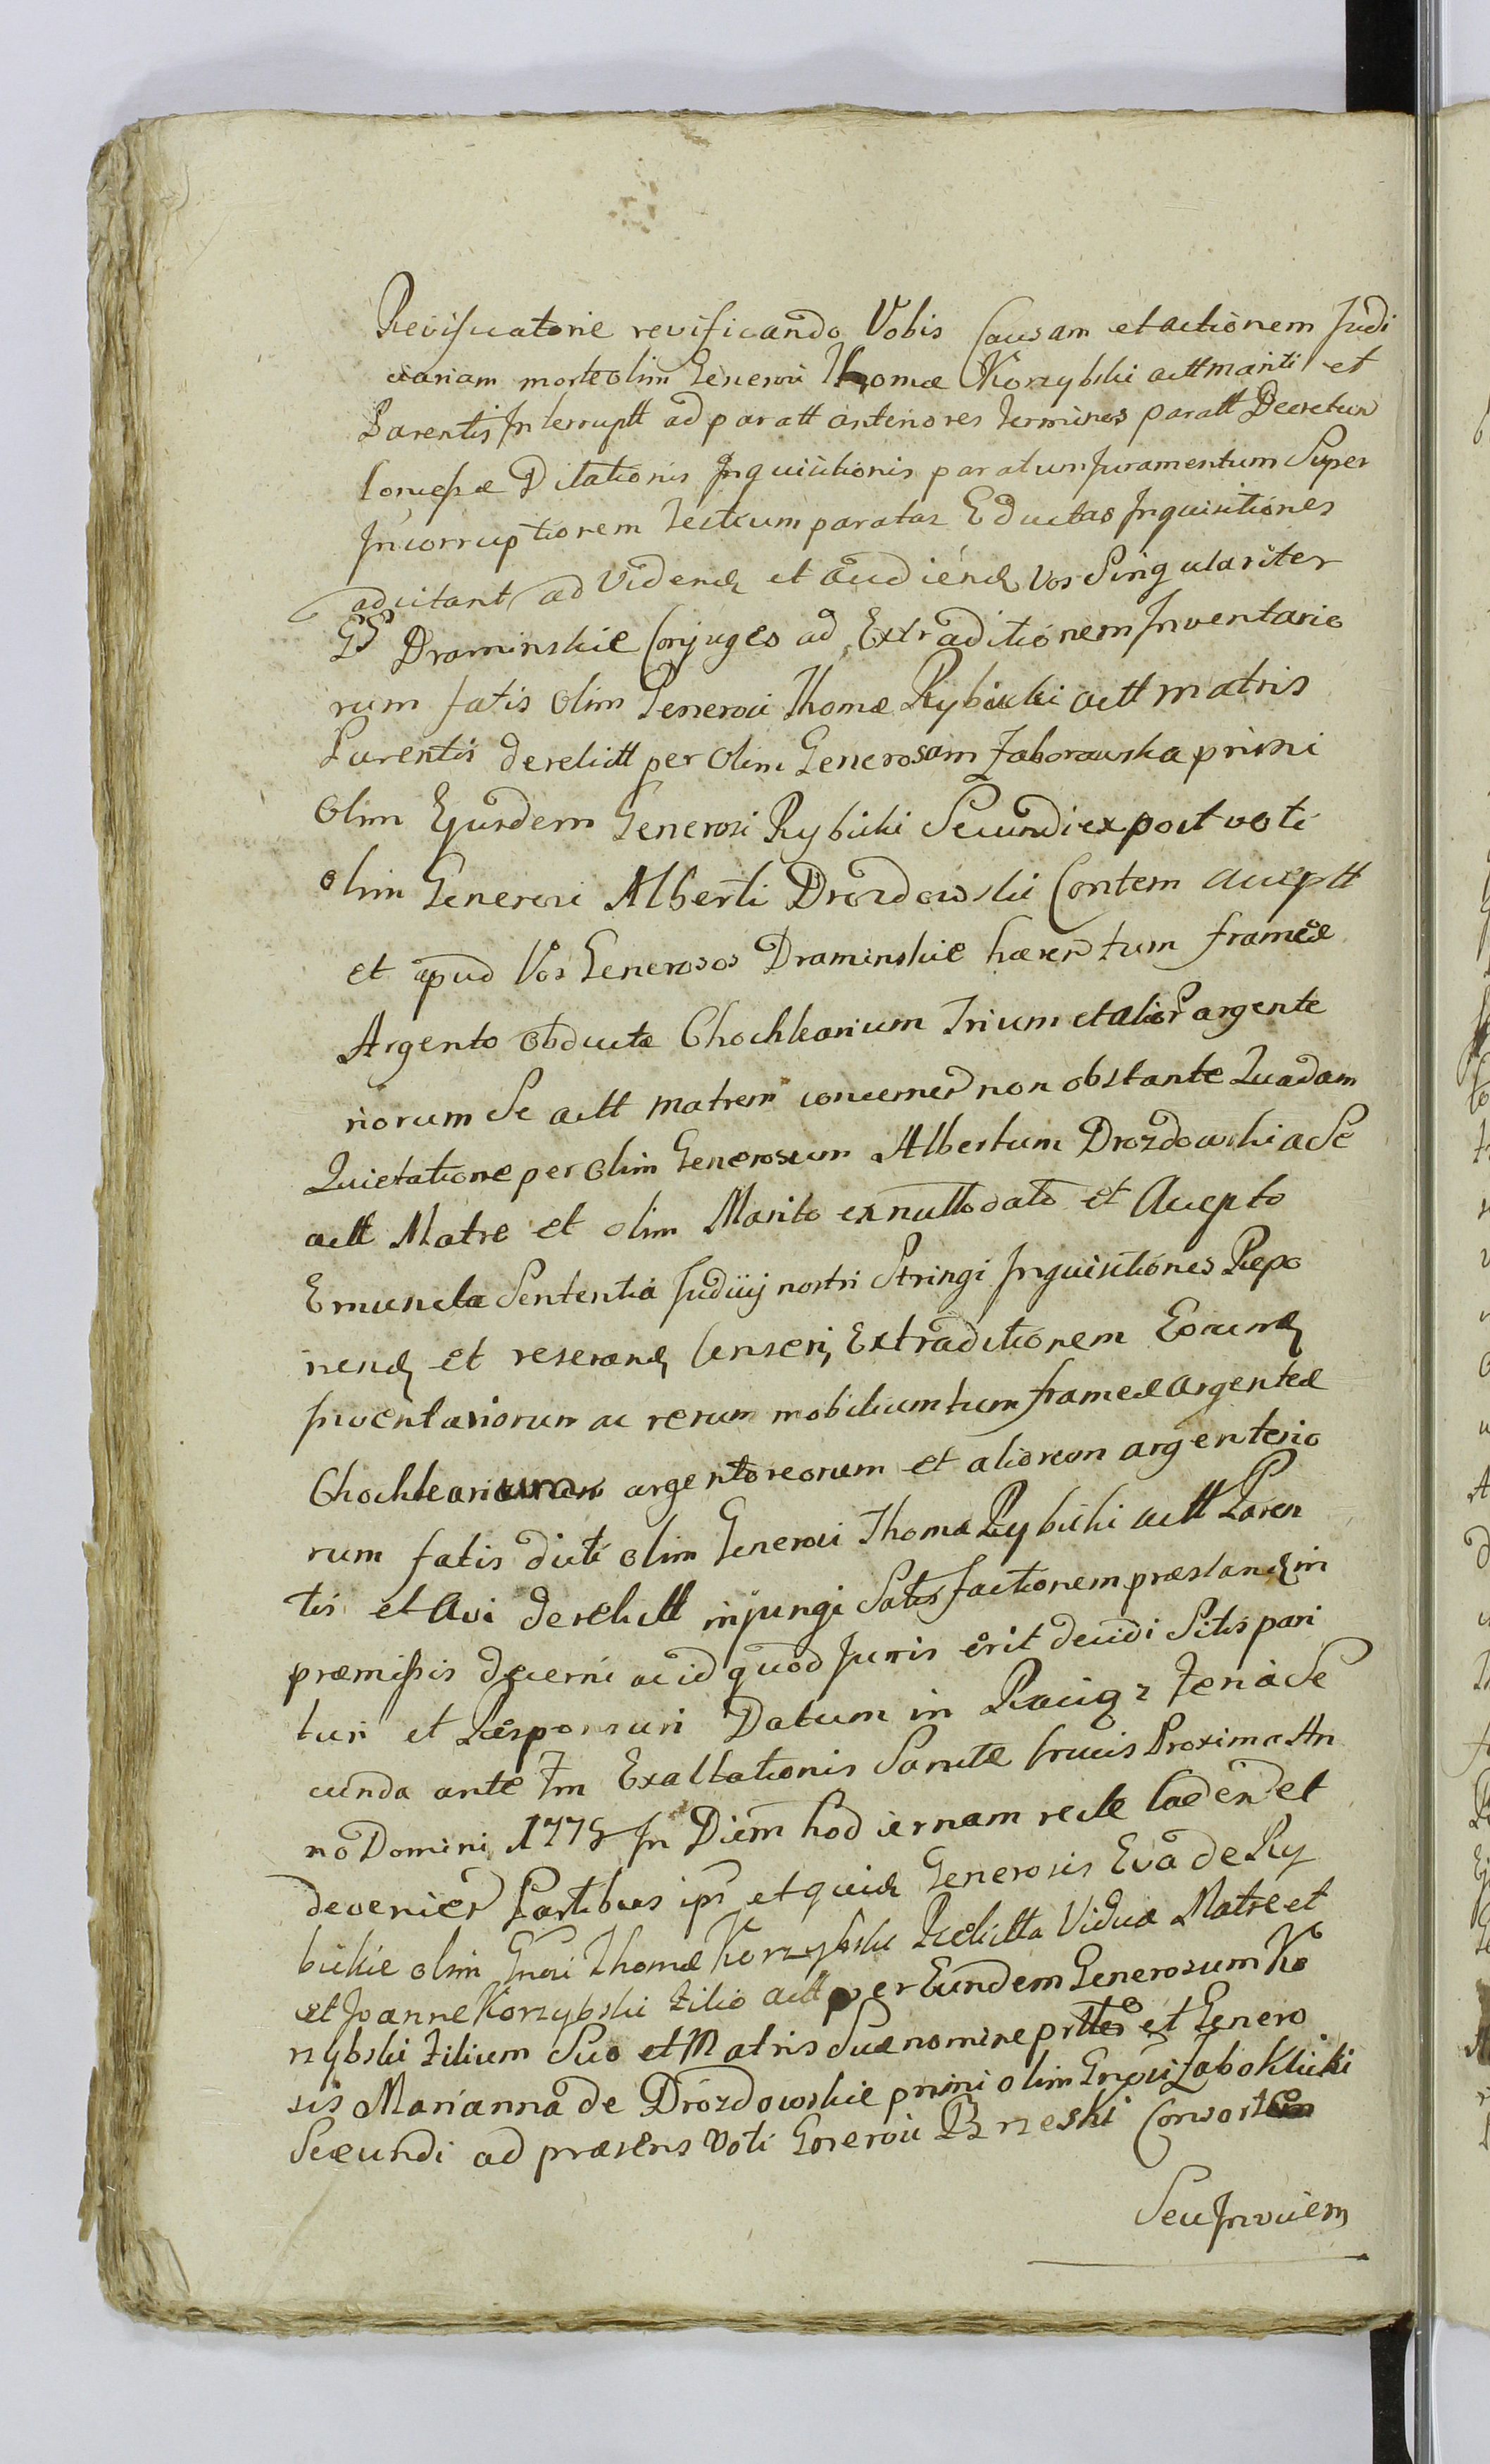 Revificatorie revificando Vobis Causam et actionem Judi
ciariam morte olim Generosi Thomæ Korzybski actt mariti et
Parentis Interruptt ad paratt anteriores Terminos paratt Decretum
Concessæ Dilationis Inquisitionis paratum Juramentum Super
Incorruptionem Testium paratas Eductas Inquisitiones
adcitant ad Videnđ et audienđ Vos Singulariter
GS Draminskie Conjuges ad Extraditionem Inventario
rum fatis olim Generosi Thomæ Rybicki actt matris
Parentis derelictt per olim Generosam Zaborowska primi
olim Ejusdem Generosi Rybicki Secundi expost voti
olim Generosi Alberti Drozdowski Contem acceptt
et apud Vos Generosos Draminskie hæren tum frameæ
Argento obductæ Chochlearium Trium et alior argente
riorum Se actt matrem concerneñ non obstante Quadam
Quietatione per olim Generosum Albertum Drozdowski a Se
actt Matre et olim Marito ex nullo dato et Accepto
Emuncta Sententia Judiij nostri Stringi Inquisitiones Repo
nenđ et reseranđ Censeri, Extraditionem Eorunđ
Inventariorum ac rerum mobilium tum frameæ argenteæ
Chochlearium argentoreorum et aliorum argenterio
rum fatis dicti olim Generosi Thomæ Rybicki actt Paren
tis et Avi derelictt injungi Satisfactionem præstanđ in
præmissis decerni ac id quod Juris erit decidi Sitis pari
turi et Responsuri Datum in Raciąz feria Se
cunda ante Fm Exaltationis Sanctæ Crucis Proxima An
no Domini 1778 In Diem hodiernam recte Cadeñ et
devenieñ Partibus ipŝ et quiđ Generosis Eva de Ry
bickie olim Gnosi Thomæ Korzybski Relicta Vidua Matre et
et Joanne Korzybski filio actt per Eundem Generosum Ko
rzybski filium Suo et Matris Suæ nomine prtteš et Genero
sis Marianna de Drozdowskie primi olim Gnosi Zaboklicki
Secundi ad præsens Voti Generosi Brzeski Consorte
Seu Invicem